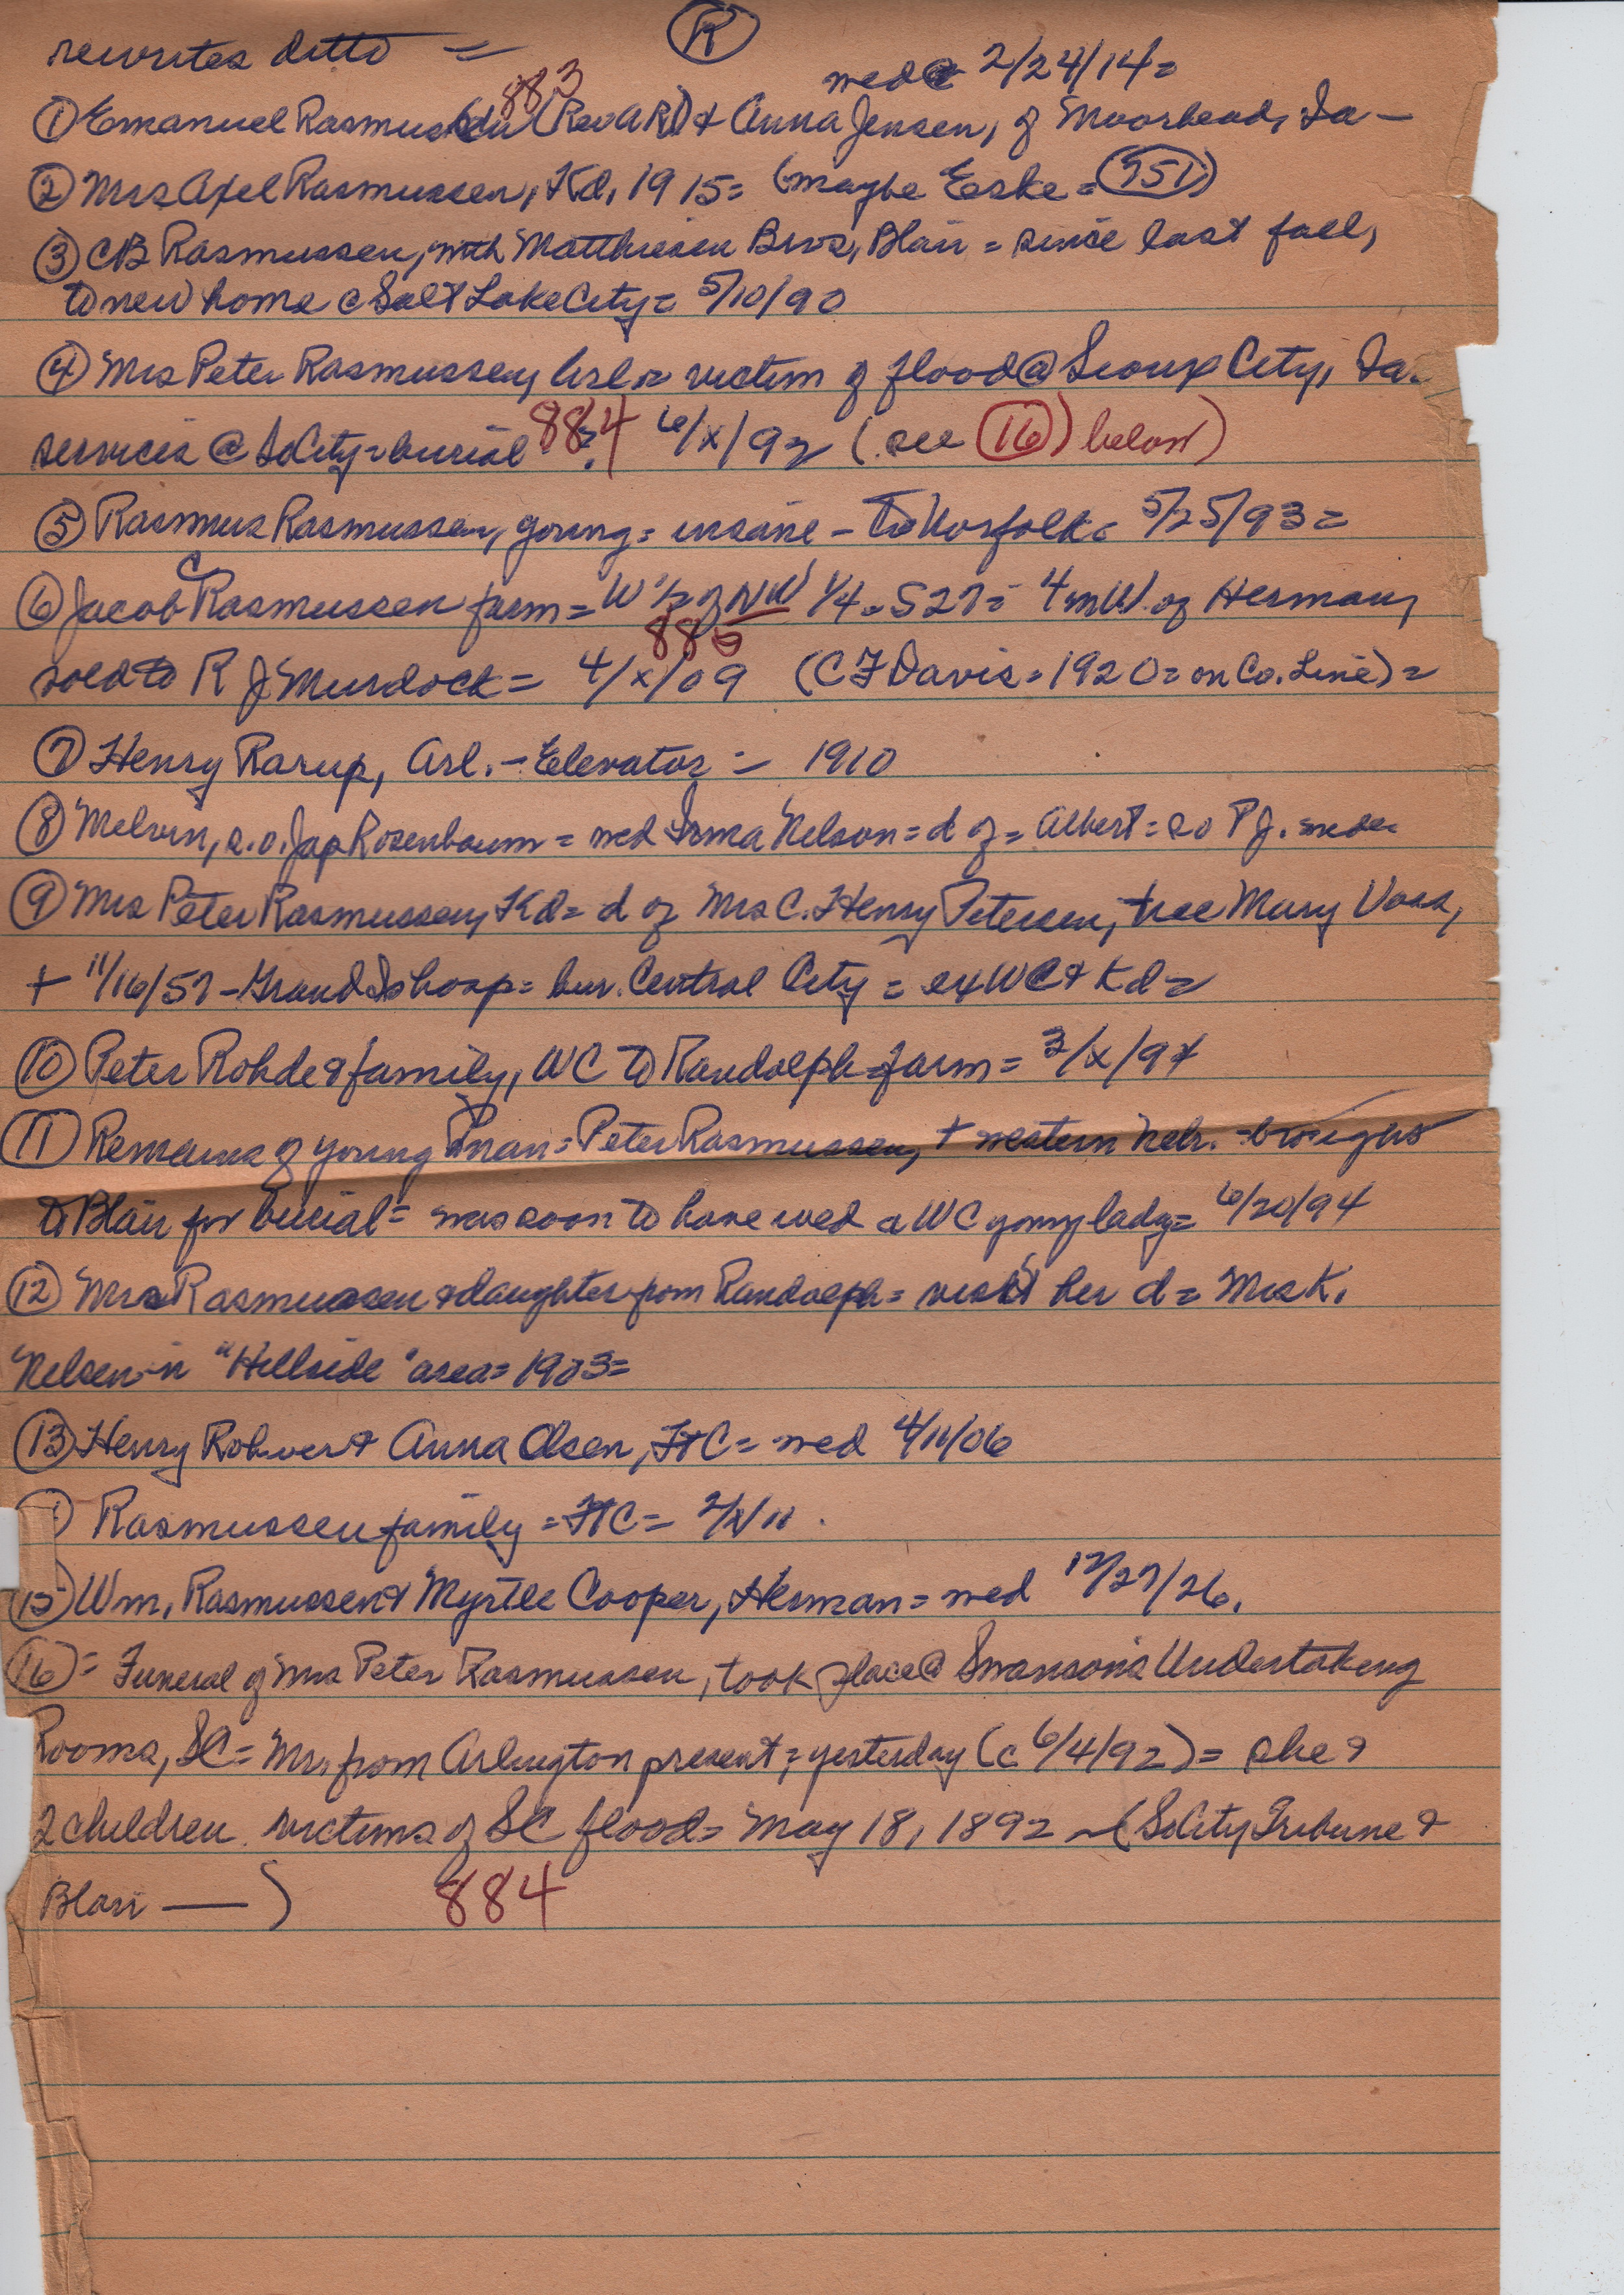 rewrites ditto = R
med @ 2/24/14=
883
① Emanuel Rasmussen (Rev ARD) & Anna Jensen, of Moorhead, Ia —
② Mrs Axel Rasmussen, Kd, 1915= (maybe Eske = 751)
③ CB Rasmussen, with Matthiesen Bros, Blair = since last fall,
to new home @ Salt Lake City = 5/10/90
④ Mrs Peter Rasmussen, Arl = victim of flood @ Sioux City, Ia.
services @ SoCity = burial ? 884 6/x/92 (see ⑯ below)
⑤ Rasmus Rasmussen, young = insane - to Norfolk = 5/25/93 =
⑥ Jacob C Rasmussen farm = W 1/2 of NW 1/4 = S27 = 4mW. of Herman,
885
sold to R J Murdock = 4/x/09 (C F Davis = 1920 = on Co. Line) =
⑦ Henry Rarup, Arl. - Elevator = 1910
⑧ Melvin, s.o. Jap Rosenbaum = med Irma Nelson = d of = Albert = so P J.
⑨ Mrs Peter Rasmussen, Kd = d of Mrs C. Henry Petersen, nee Mary Voss,
+ 11/16/57 - Grand Is hosp = bur. Central City = ex WC & Kd =
⑩ Peter Rohde & family, WC to Randolph farm = 3/x/94
⑪ Remains of young man = Peter Rasmussen, + western Nebr. - brought
to Blair for burial = was soon to have wed a WC young lady = 6/20/94
⑫ Mrs Rasmussen & daughter from Randolph = visit her d = Mrs K.
Nelsen in "Hillside" area = 1903 =
⑬ Henry Rohwer & Anna Olsen, FtC = med 4/11/06
Rasmussen family = FtC = 2/x/11.
⑮ Wm. Rasmussen & Myrtle Cooper, Herman = med 12/27/26.
⑯ = Funeral of Mrs Peter Rasmussen, took place @ Swanson's Undertaking
Rooms, SC = Mr. from Arlington present = yesterday (c 6/4/92) = she &
2 children victims of SC flood = May 18, 1892 ~ (SoCity Tribune &
Blair —— ) 884